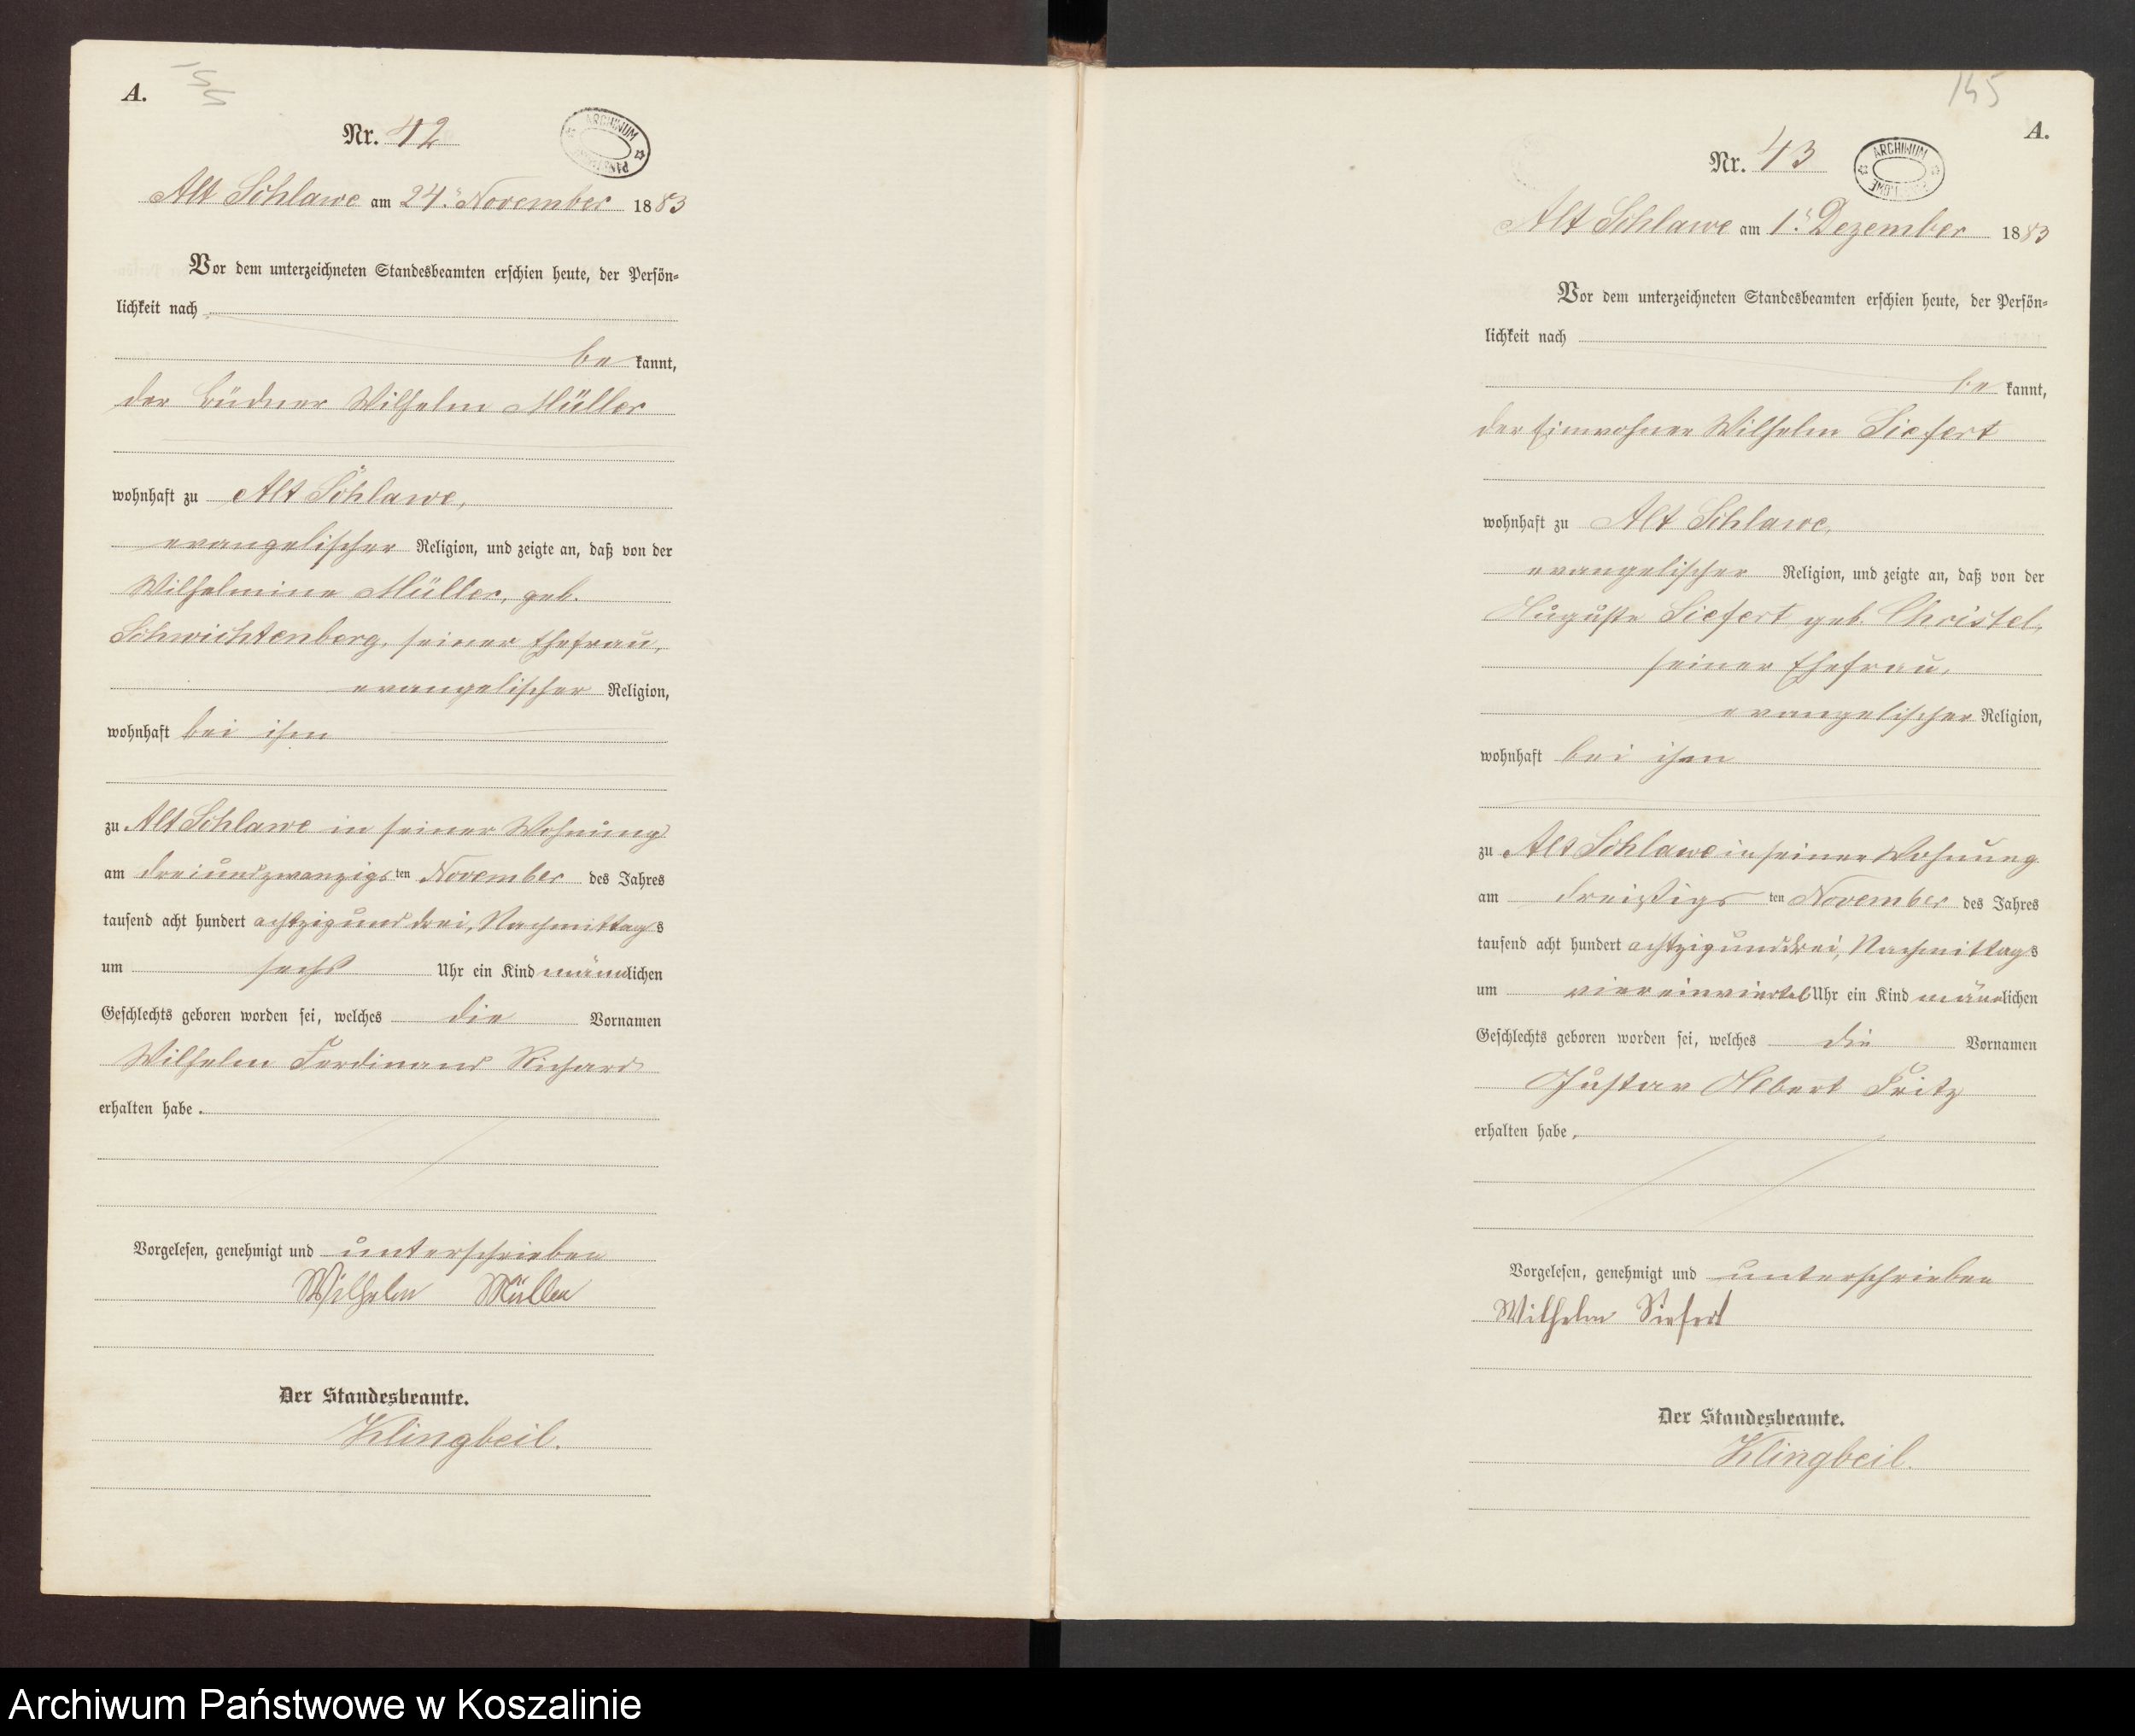 A.
Nr. 42
ARCHIWUM
Alt Schlawe am 24. November 1883
Vor dem unterzeichneten Standesbeamten erschien heute, der Persön-
lichkeit nach
be kannt,
der Büdner Wilhelm Müller
wohnhaft zu Alt Schlawe,
evangelischer Religion, und zeigte an, daß von der
Wilhelmine Müller, geb.
Schwichtenberg, seiner Ehefrau,
evangelischer Religion,
wohnhaft bei ihm
zu Alt Schlawe in seiner Wohnung
am dreiundzwanzigs ten November des Jahres
tausend acht hundert achtzig und drei, Nachmittag s
um sechs Uhr ein Kind männlichen
Geschlechts geboren worden sei, welches die Vornamen
Wilhelm Ferdinand Richard
erhalten habe.
Vorgelesen, genehmigt und unterschrieben
Wilhelm Müller
Der Standesbeamte.
Klingbeil.
145
A.
Nr. 43
ARCHIWUM
Alt Schlawe am 1. Dezember 1883
Vor dem unterzeichneten Standesbeamten erschien heute, der Persön-
lichkeit nach
be kannt,
der Einwohner Wilhelm Siefert
wohnhaft zu Alt Schlawe,
evangelischer Religion, und zeigte an, daß von der
Auguste Siefert geb. Christel,
seiner Ehefrau,
evangelischer Religion,
wohnhaft bei ihm
zu Alt Schlawe in seiner Wohnung
am dreißigs ten November des Jahres
tausend acht hundert achtzig und drei, Nachmittag s
um vier einviertel Uhr ein Kind männlichen
Geschlechts geboren worden sei, welches die Vornamen
Gustav Albert Fritz
erhalten habe,
Vorgelesen, genehmigt und unterschrieben
Wilhelm Siefert
Der Standesbeamte.
Klingbeil.
Archiwum Państwowe w Koszalinie